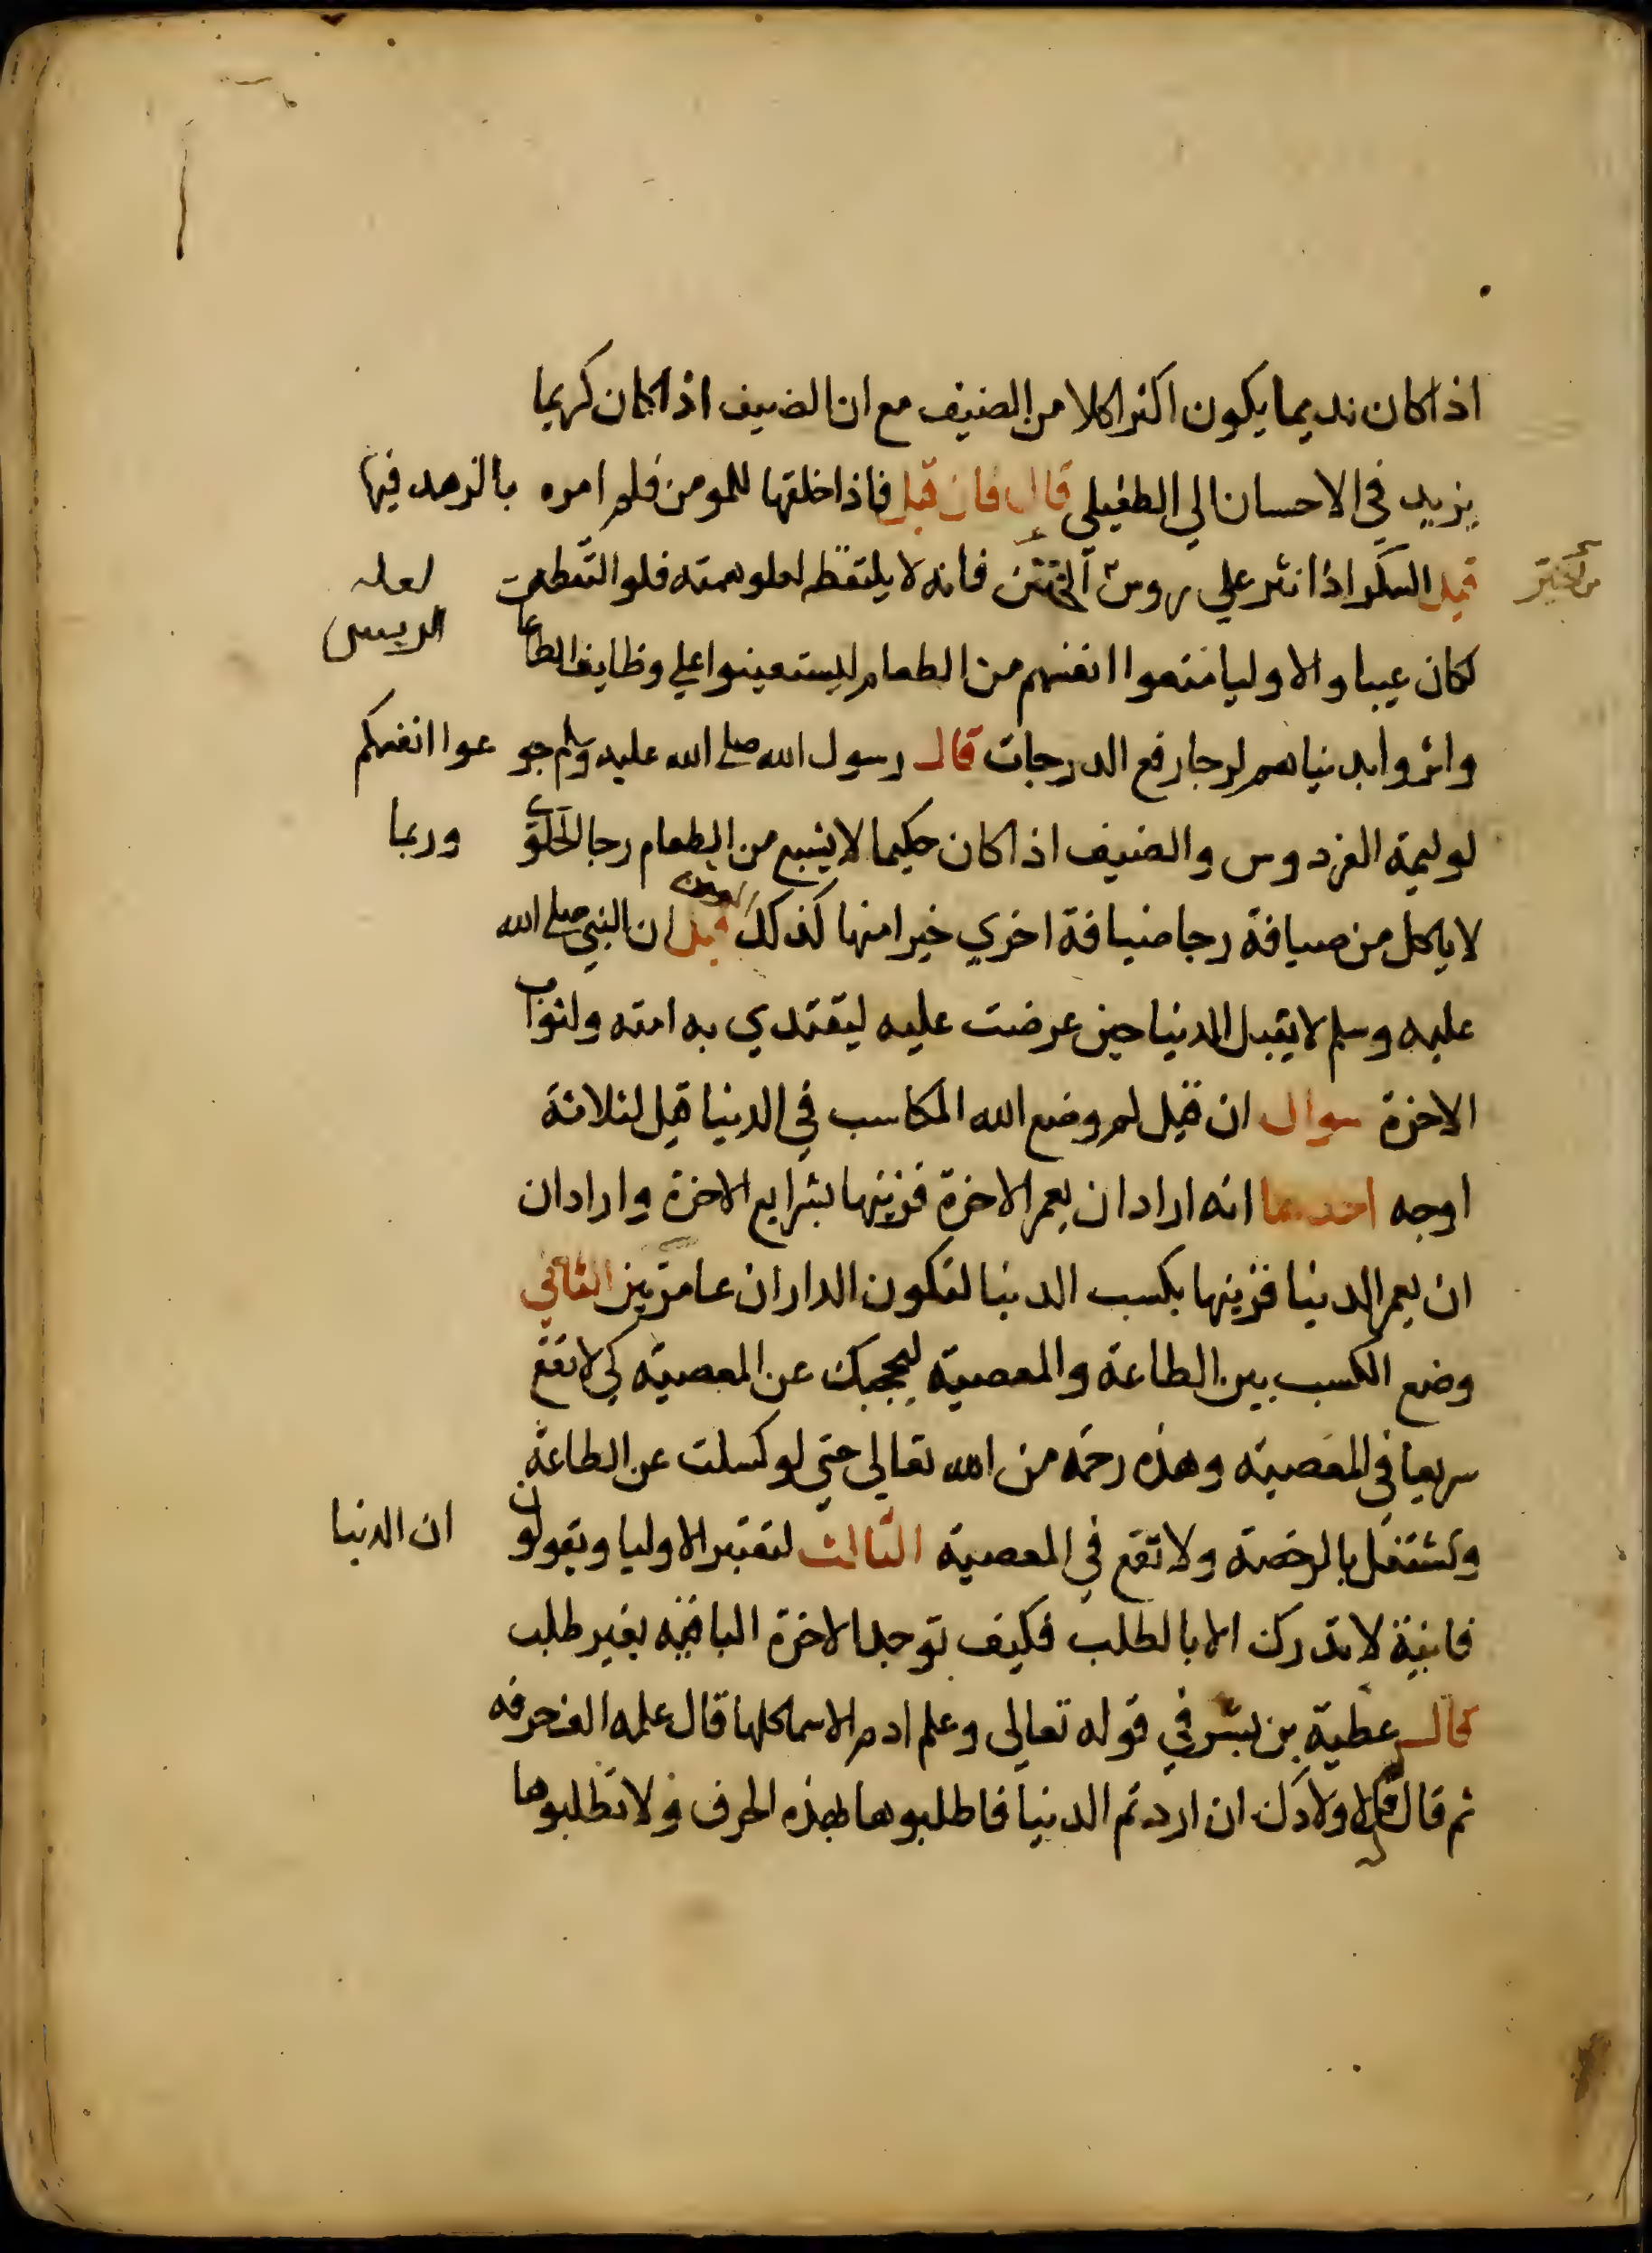 اذا كان نديما يكون اكثر اكلا من الضيف مع ان الضيف اذا كان كريما
يزيد في الاحسان الي الطفيلي قال فان قيل فاذا خلقها للمومن فلم امره بالزهد فيها
قيل السكر اذا نثر علي روس فانه لا يلتقطه لعلو همته فلو التقطه
لعله
الريس
لكان عيبا والاوليا منعوا انفسهم من الطعام ليستعينوا علي وظايف الطاعا
واثروا بدنياهم لرجا رفع الدرجات قال رسول الله صلي الله عليه وسلم جو عوا انفسكم
لوليمة الفردوس والضيف اذا كان حكيما لا يشبع من الطعام رجا الحلوي وربما
لا ياكل من ضيافة رجا ضيافة اخري خيرا منها كذلك المومن قيل ان النبي صلي الله
عليه وسلم لا يقبل الدنيا حين عرضت عليه ليقتدي به امته ولثواب
الاخرة سوال ان قيل لم وضع الله المكاسب في الدنيا قيل لثلاثة
اوجه احدهما انه اراد ان يعمر الاخرة فزينها بشرايع الاخرة واراد ان
ان يعمر الدنيا فزينها بكسب الدنيا لتكون الداران عامرتين الثاني
وضع الكسب بين الطاعة والمعصية ليحجبك عن المعصية كي لا تقع
سريعا في المعصية وهذه رحمة من الله تعالي حتي لو كسلت عن الطاعة
وتشتغل بالرخصة ولا تقع في المعصية الثالث لتعتبر الاوليا ويقولون ان الدنيا
فانية لا تدرك الا بالطلب فكيف توجد الاخرة الباقية بغير طلب
قال عطية بن بشر في قوله تعالي وعلم ادم الاسما كلها قال علمه الف حرفه
ثم قال قل لاولادك ان اردتم الدنيا فاطلبوها بهذه الحرف ولا تطلبوها